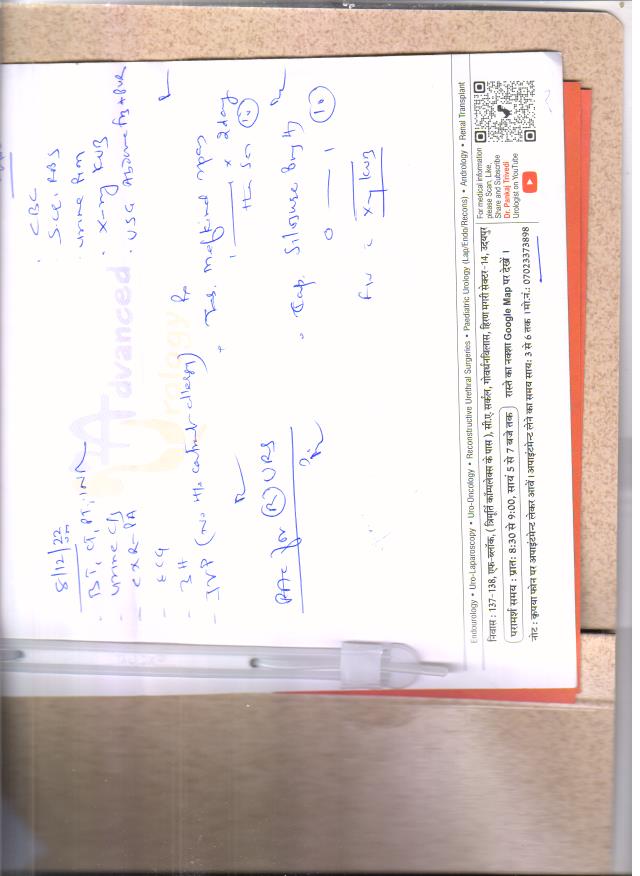 CBC
S.Cr, RBS
Urine R/M
X-ray KUB
USG
Rx
Tab.
x 2 days
then SOS (10)
Cap. Silosure
0 — 1 (10)
x-ray KUB
8/12/22
BT, CT, PT, INR
Urine C/S
CXR-PA
ECG
3H
IVP (No H/o contrast allergy)
PAC for (R) URS
Advanced
Urology
Endourology • Uro-Laparoscopy • Uro-Oncology • Reconstructive Urethral Surgeries • Paediatric Urology (Lap/Endo/Recons) • Andrology • Renal Transplant
निवास : 137-138, एफ-ब्लॉक, ( त्रिमूर्ति कॉम्पलेक्स के पास ), सी.ए. सर्कल, गोवर्धनविलास, हिरण मगरी सेक्टर -14, उदयपुर
परामर्श समय : प्रातः 8:30 से 9:00, सायं 5 से 7 बजे तक रास्ते का नक्शा Google Map पर देखें ।
नोट : कृपया फोन पर अपाईंटमेन्ट लेकर आवें। अपाईंटमेन्ट लेने का समय सायः 3 से 6 तक । मो.नं.: 07023373898
For medical information
please Scan, Like,
Share and Subscribe
Dr. Pankaj Trivedi
Urologist on YouTube